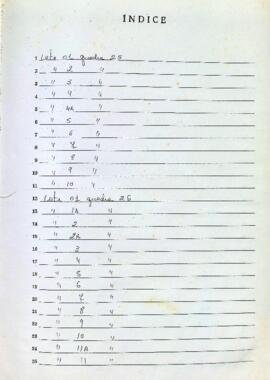 ÍNDICE
1 Lote 01 quadra 25
2 " 2 "
3 " 3 "
4 " 4 "
5 " 4A "
6 " 5 "
7 " 6 "
8 " 7 "
9 " 8 "
10 " 9 "
11 " 10 "
12 Lote 01 quadra 26
13 " 1A "
14 " 2 "
15 " 2A "
16 " 3 "
17 " 4 "
18 " 5 "
19 " 6 "
20 " 7 "
21 " 8 "
22 " 9 "
23 " 10 "
24 " 11A "
25 " 11 "